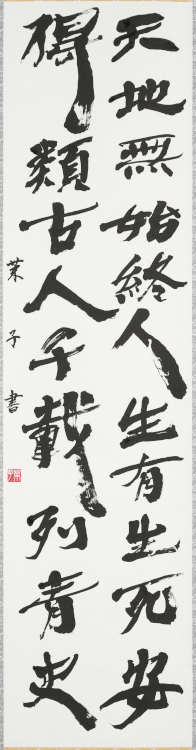 天地無始終人生有生死安
得類古人千載列青史
茉子書